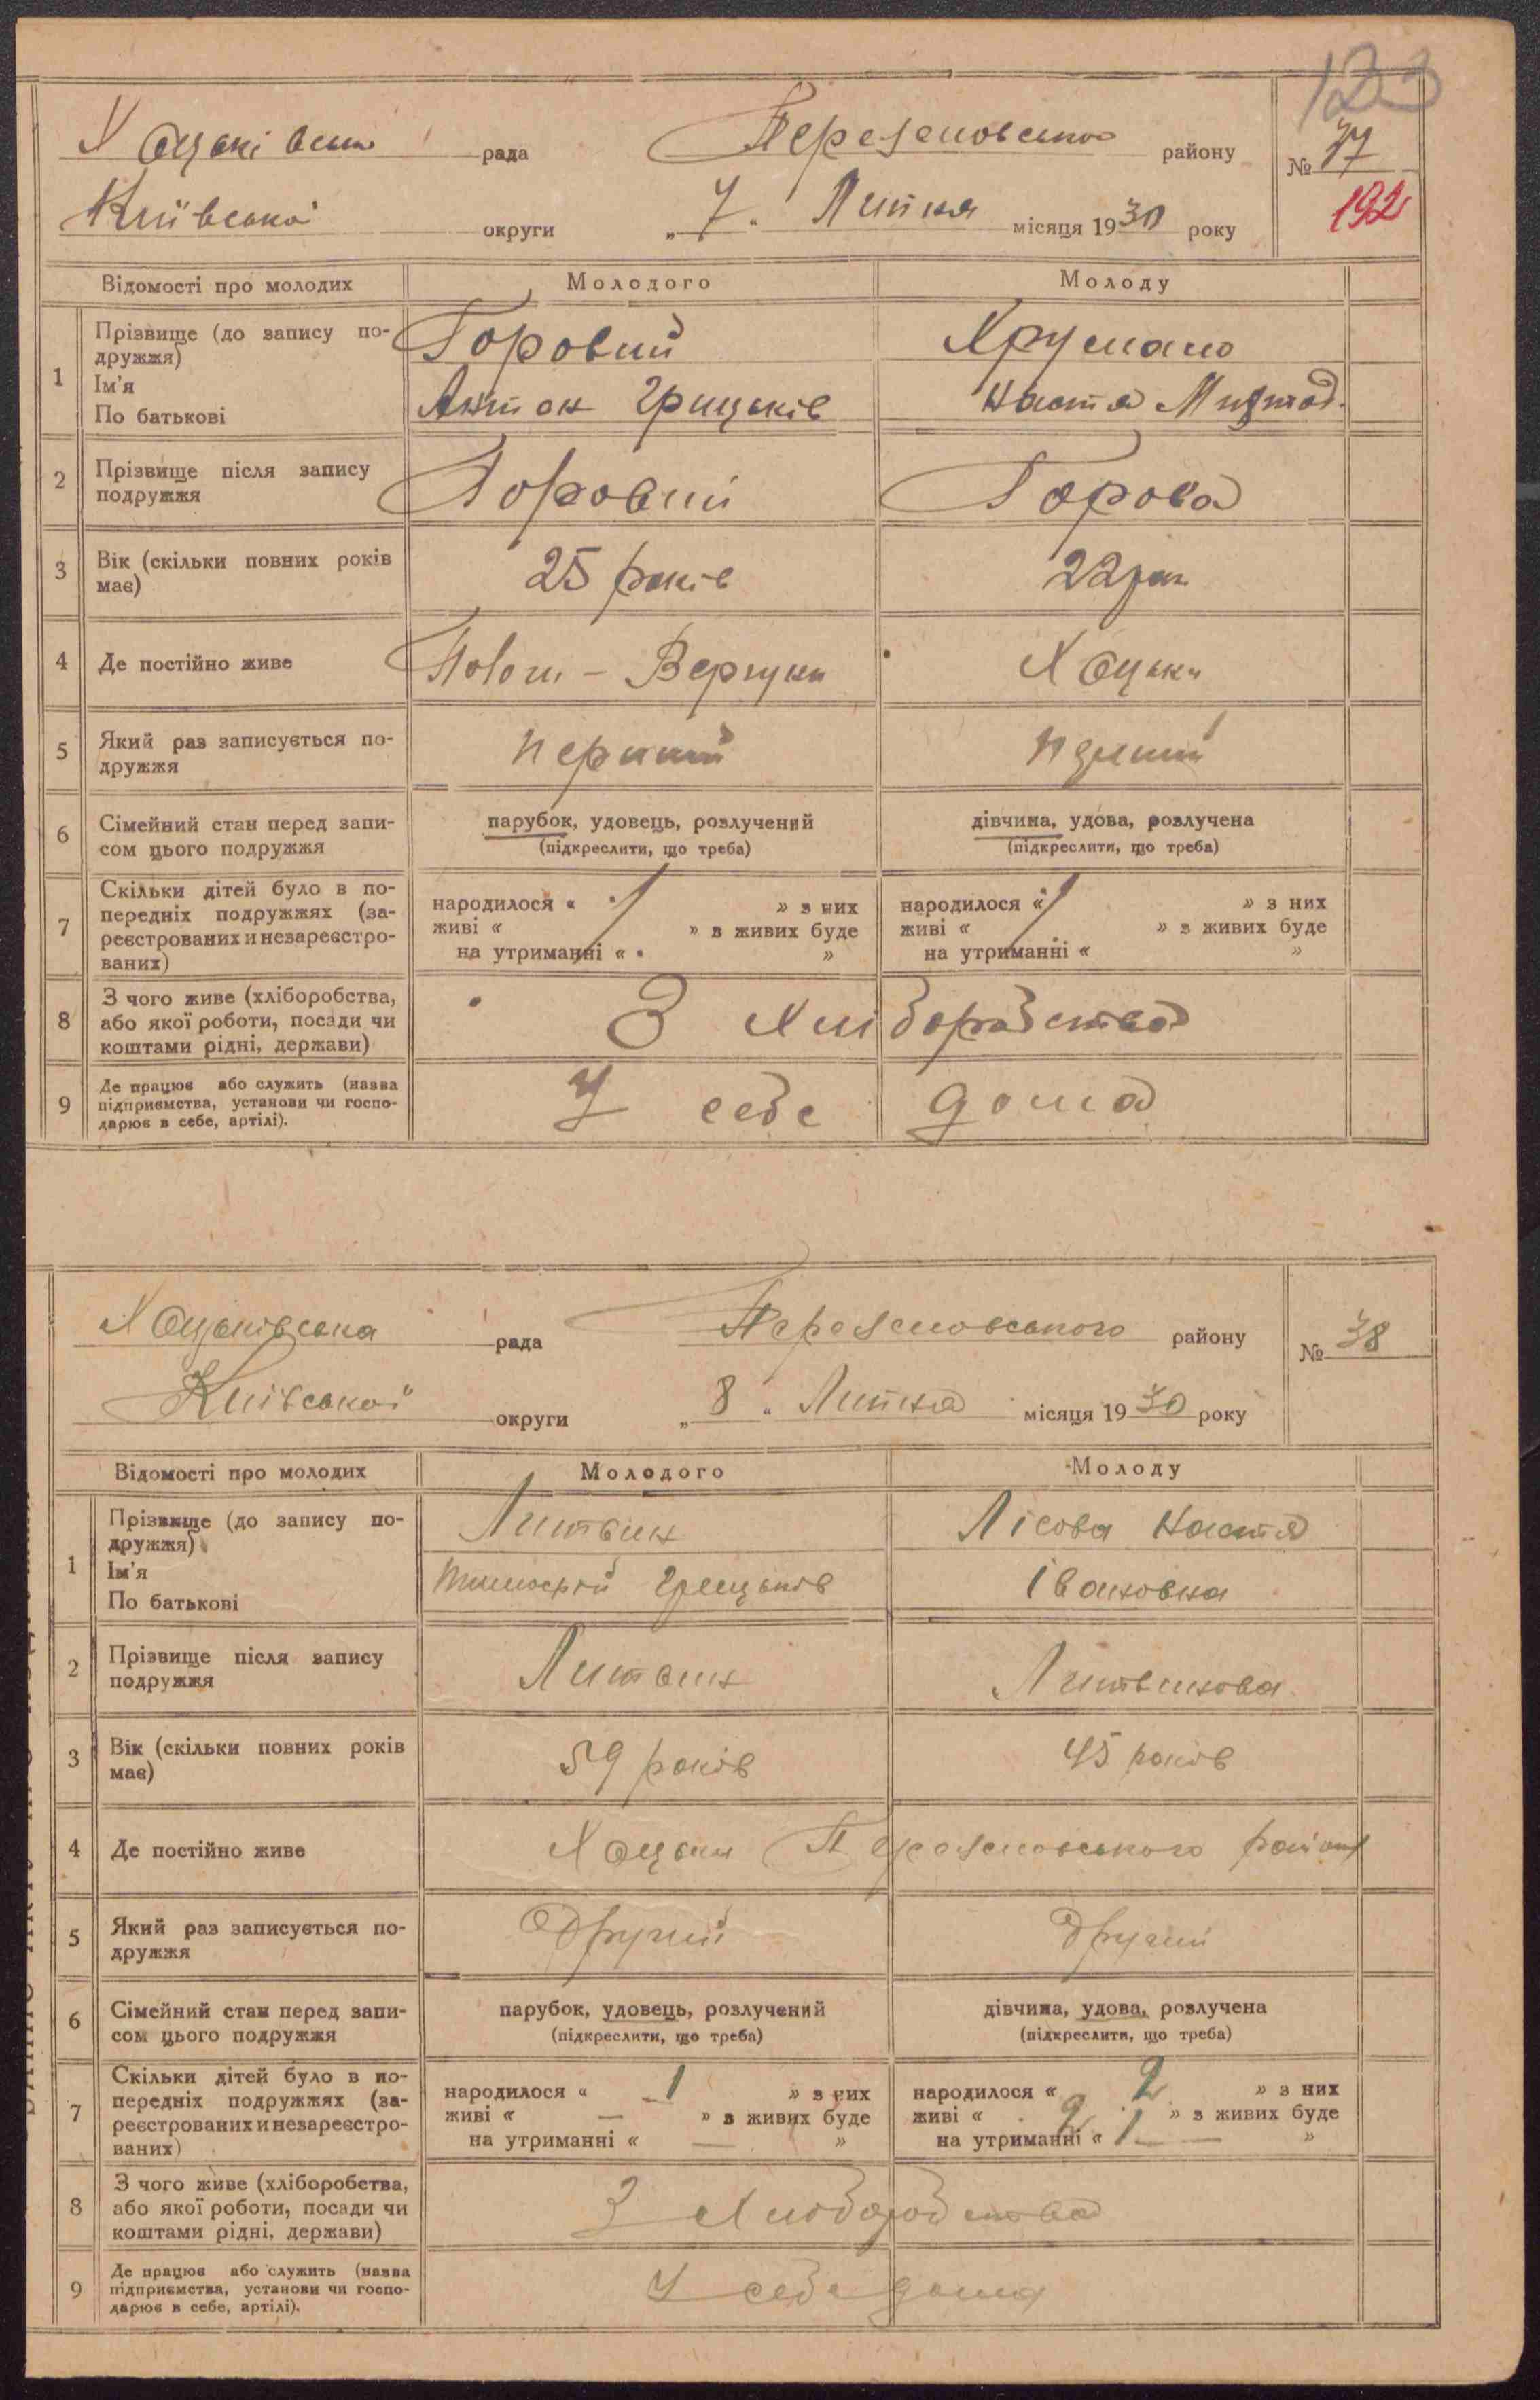 123
Хоцьківська рада Переяславського району № 37
Київської округи „ 7 “ Липня місяця 1930 року 192
Відомості про молодих Молодого Молоду
1 Прізвище (до запису по-
дружжя)
Ім'я
По батькові
Горовий
Антон Грицьків
Настя
2 Прізвище після запису
подружжя
Горовий Горова
3 Вік (скільки повних років
має)
25 років 22 рок
4 Де постійно живе
Хоцьки
5 Який раз записується по-
дружжя
перший перший
6 Сімейний стан перед запи-
сом цього подружжя
парубок, удовець, розлучений
(підкреслити, що треба)
дівчина, удова, розлучена
(підкреслити, що треба)
7 Скільки дітей було в по-
передніх подружжях (за-
реєстрованих и незареєстро-
ваних)
народилося « » з них
живі « » в живих буде
на утриманні « »
народилося « » з них
живі « » в живих буде
на утриманні « »
8 З чого живе (хліборобства,
або якої роботи, посади чи
коштами рідні, держави)
З хліборобства
9 Де працює або служить (назва
підприємства, установи чи госпо-
дарює в себе, артілі).
У себе дома
Хоцьківська рада Переяславського району № 38
Київської округи „ 8 “ Липня місяця 1930 року
Відомості про молодих Молодого Молоду
1 Прізвище (до запису по-
дружжя)
Ім'я
По батькові
Литвин
Тимофій Грицьків
Лісова Настя
Івановна
2 Прізвище після запису
подружжя
Литвин Литвинова
3 Вік (скільки повних років
має)
59 років 45 років
4 Де постійно живе
Хоцьки Переяславського району
5 Який раз записується по-
дружжя
Другий Другий
6 Сімейний стан перед запи-
сом цього подружжя
парубок, удовець, розлучений
(підкреслити, що треба)
дівчина, удова, розлучена
(підкреслити, що треба)
7 Скільки дітей було в по-
передніх подружжях (за-
реєстрованих и незареєстро-
ваних)
народилося « 1 » з них
живі « — » в живих буде
на утриманні « — »
народилося « 2 » з них
живі « 2 » в живих буде
на утриманні « 1 — »
8 З чого живе (хліборобства,
або якої роботи, посади чи
коштами рідні, держави)
З хліборобства
9 Де працює або служить (назва
підприємства, установи чи госпо-
дарює в себе, артілі).
У себе дома